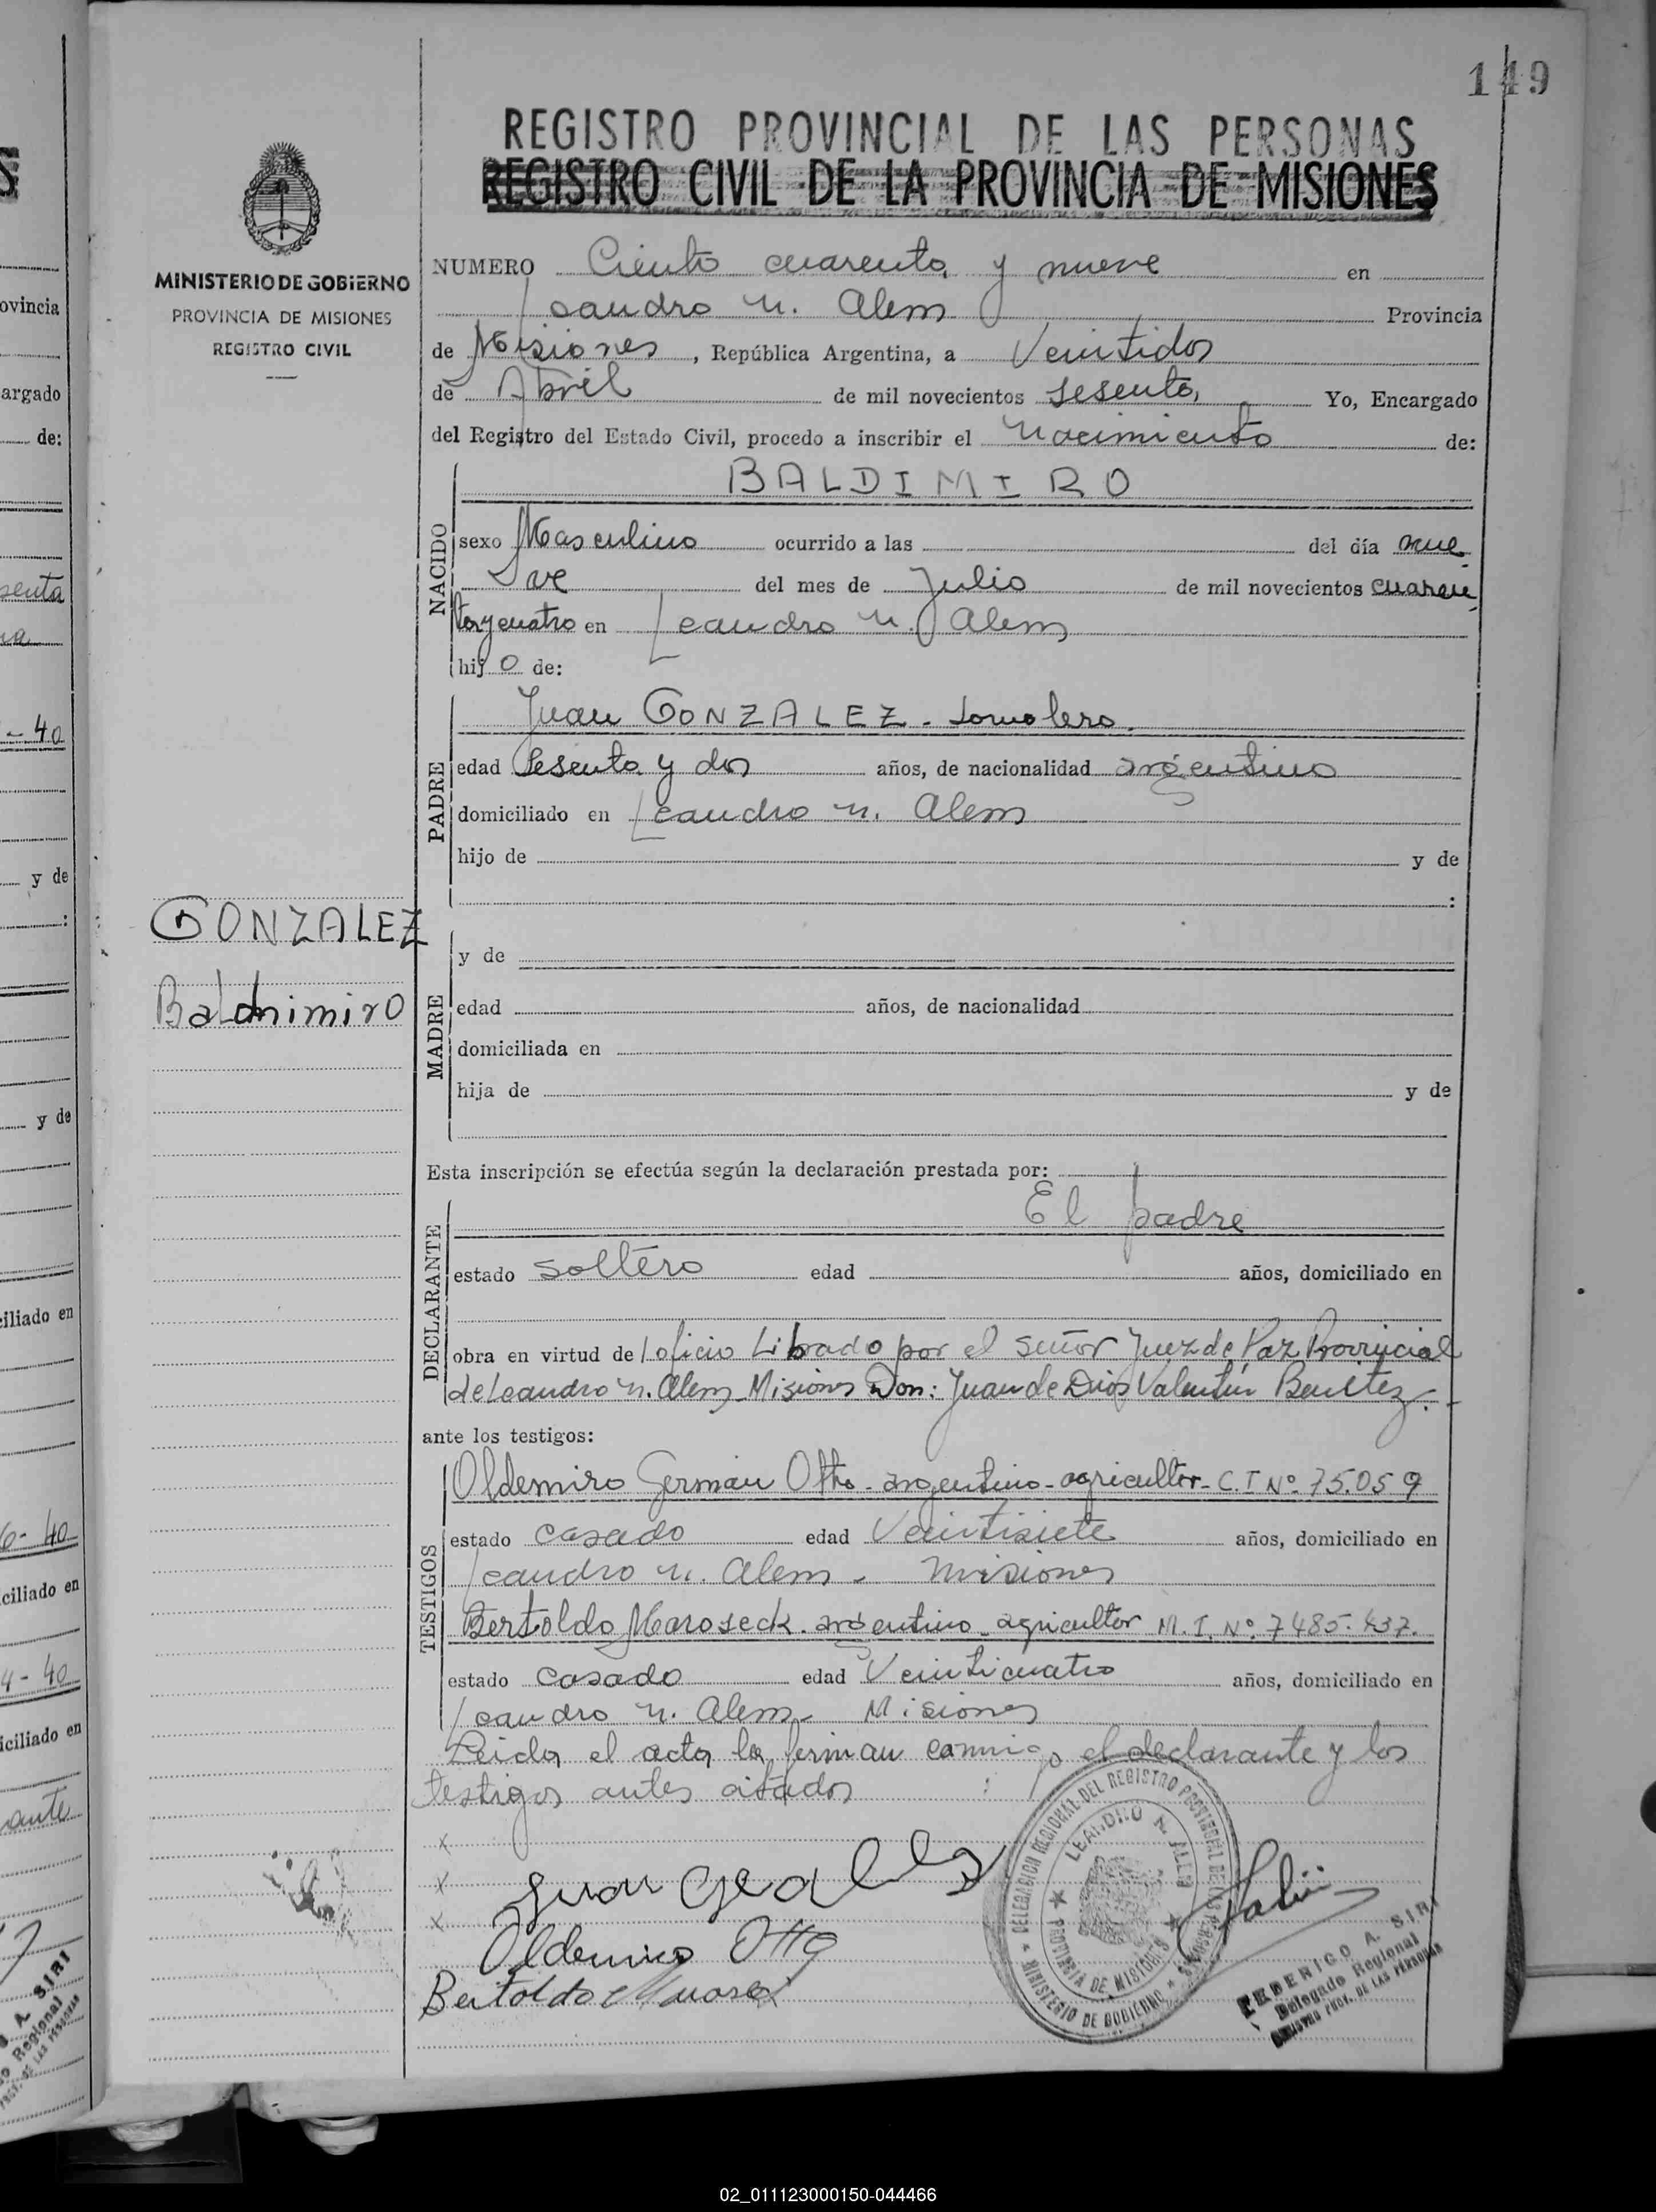 149
REGISTRO PROVINCIAL DE LAS PERSONAS
REGISTRO CIVIL DE LA PROVINCIA DE MISIONES
MINISTERIO DE GOBIERNO
PROVINCIA DE MISIONES
REGISTRO CIVIL
NUMERO Ciento cuarenta y nueve en
Leandro N. Alem Provincia
de Misiones, República Argentina, a Veintidos
de Abril de mil novecientos sesenta, Yo, Encargado
del Registro del Estado Civil, procedo a inscribir el Nacimiento de:
NACIDO
BALDIMIRO
sexo Masculino ocurrido a las del día nue
ve del mes de Julio de mil novecientos cuaren
ta y cuatro en Leandro N. Alem
hijo de:
PADRE
Juan GONZALEZ - Jornalero.
edad Sesenta y dos años, de nacionalidad argentino
domiciliado en Leandro N. Alem
hijo de y de
:
GONZALEZ
Baldimiro
MADRE
y de
edad años, de nacionalidad
domiciliada en
hija de y de
Esta inscripción se efectúa según la declaración prestada por:
DECLARANTE
El padre
estado soltero edad años, domiciliado en
obra en virtud del oficio Librado por el señor Juez de Paz Provincial
de Leandro N. Alem Misiones Don: Juan de Dios Valentin Benitez.-
ante los testigos:
TESTIGOS
Oldemiro German Otto - argentino - agricultor - C.I Nº 75.059
estado casado edad Veintisiete años, domiciliado en
Leandro N. Alem - Misiones
Bertoldo Maroseck - argentino - agricultor M.I. Nº 7485.437.
estado casado edad Veinticuatro años, domiciliado en
Leandro N. Alem - Misiones
Leida el acta la firman conmigo el declarante y los
testigos antes citados :
Juan
Oldemiro Otto
Bertoldo
DELEGACION REGIONAL DEL REGISTRO PROVINCIAL DE LAS PERSONAS
LEANDRO N. ALEM
PROVINCIA DE MISIONES
MINISTERIO DE GOBIERNO
FEDERICO A. SIRI
Delegado Regional
REGISTRO PROV. DE LAS PERSONAS
02_011123000150-044466